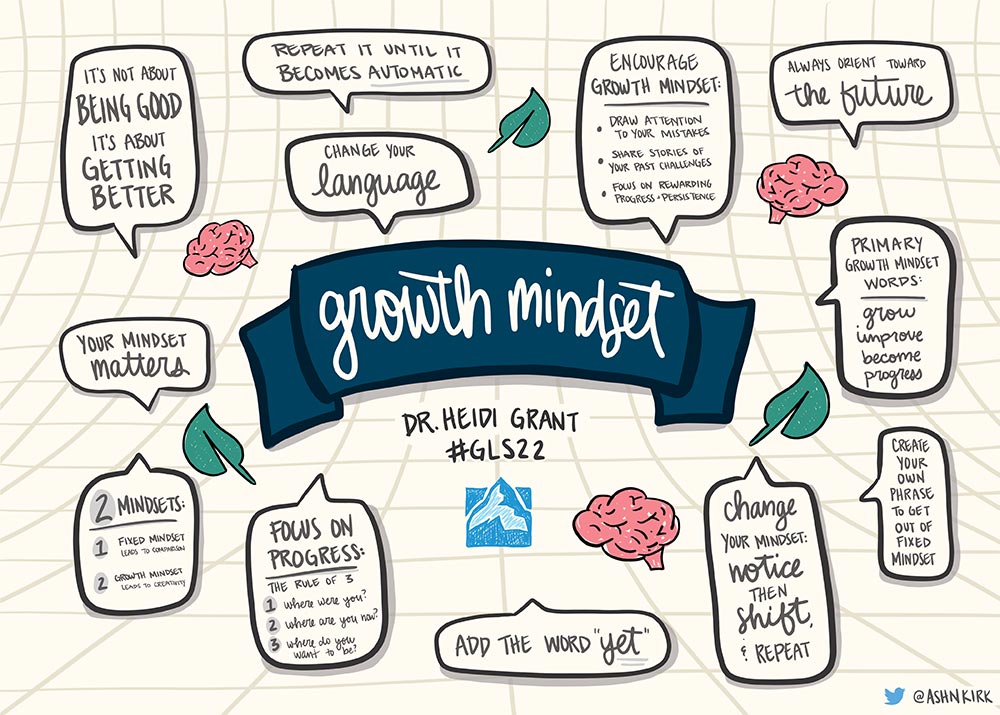 IT'S NOT ABOUT
BEING GOOD
IT'S ABOUT
GETTING
BETTER
REPEAT IT UNTIL IT
BECOMES AUTOMATIC
CHANGE YOUR
language
ENCOURAGE
GROWTH MINDSET:
• DRAW ATTENTION
TO YOUR MISTAKES
• SHARE STORIES OF
YOUR PAST CHALLENGES
• FOCUS ON REWARDING
PROGRESS + PERSISTENCE
ALWAYS ORIENT TOWARD
the future
PRIMARY
GROWTH MINDSET
WORDS:
grow
improve
become
progress
growth mindset
DR. HEIDI GRANT
#GLS22
YOUR MINDSET
matters
2 MINDSETS:
1 FIXED MINDSET
LEADS TO COMPARISON
2 GROWTH MINDSET
LEADS TO CREATIVITY
FOCUS ON
PROGRESS:
THE RULE OF 3
1 where were you?
2 where are you now?
3 where do you
want to be?
ADD THE WORD "yet"
change
YOUR MINDSET:
notice
THEN
shift,
& REPEAT
CREATE
YOUR
OWN
PHRASE
TO GET
OUT OF
FIXED
MINDSET
@ASHNKIRK